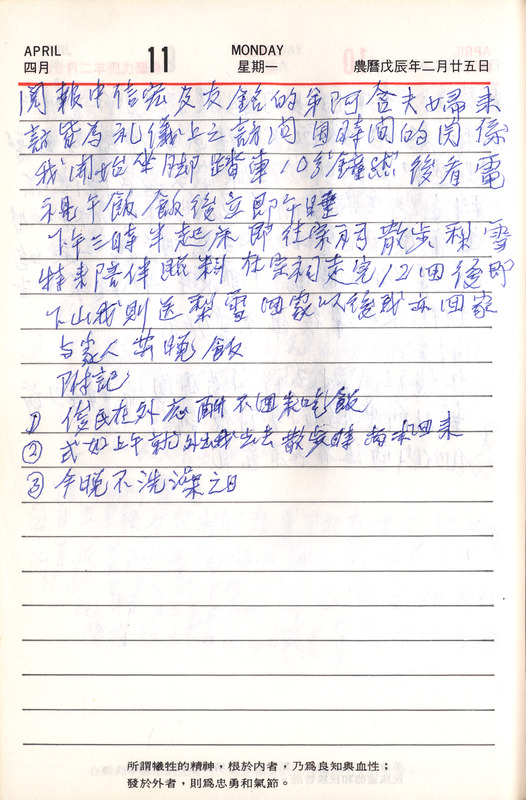 APRIL 11 MONDAY
四月 星期一 農曆戊辰年二月廿五日
閱報中信宏及友銘的弟阿舍夫婦來
訪皆為礼儀上之訪问因時间的関係
我開始坐脚踏車10分鐘然後看電
視午飯飯後立即午睡
下午三時半起床即往宗祠散步梨雪
特來陪伴照料在宗祠走完12回後即
下山我則送梨雪回家以後我亦回家
与家人共晚飯
附記
① 信民在外应酬不回來吃飯
② 式如上午就外出我出去散步時尚未回來
③ 今晚不洗澡之日
所謂犧牲的精神，根於內者，乃爲良知與血性；
發於外者，則爲忠勇和氣節。